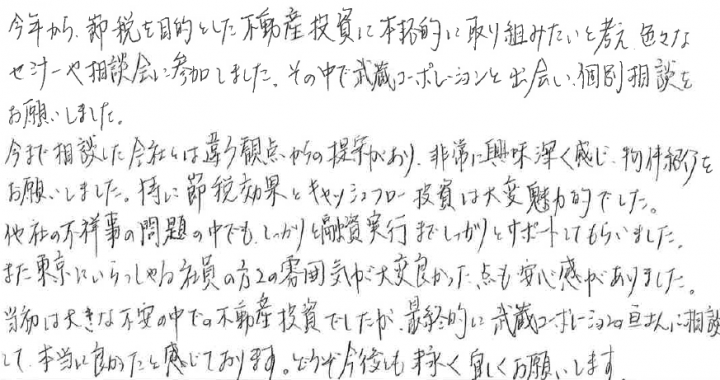 今年から、節税を目的とした不動産投資に本格的に取り組みたいと考え、色々な
セミナーや相談会に参加しました。その中で武蔵コーポレーションと出会い、個別相談を
お願いしました。
今まで相談した会社とは違う観点からの提案があり、非常に興味深く感じ、物件紹介を
お願いしました。特に節税効果とキャッシュフロー投資は大変魅力的でした。
他社の不祥事の問題の中でも、しっかりと融資実行までしっかりとサポートしてもらいました。
また東京にいらっしゃる社員の方々の雰囲気が大変良かった点も安心感がありました。
当初は大きな不安の中での不動産投資でしたが、最終的に武蔵コーポレーションの亘さんに相談
して、本当に良かったと感じております。どうぞ今後とも末永く宜しくお願いします。